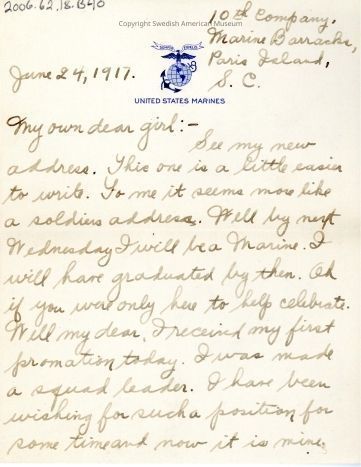 2006.62.18.B40
Copyright Swedish American Museum
10th Company,
Marine Barracks,
Paris Island,
S. C.
June 24, 1917.
SEMPER FIDELIS
UNITED STATES MARINES
My own dear girl:-
See my new
address. This one is a little easier
to write. To me it seems more like
a soldiers address. Well by next
Wednesday I will be a Marine. I
will have graduated by then. Oh
if you were only here to help celebrate.
Well my dear, I receivd my first
promation today. I was made
a squad leader. I have been
wishing for such a position for
some time and now it is mine.